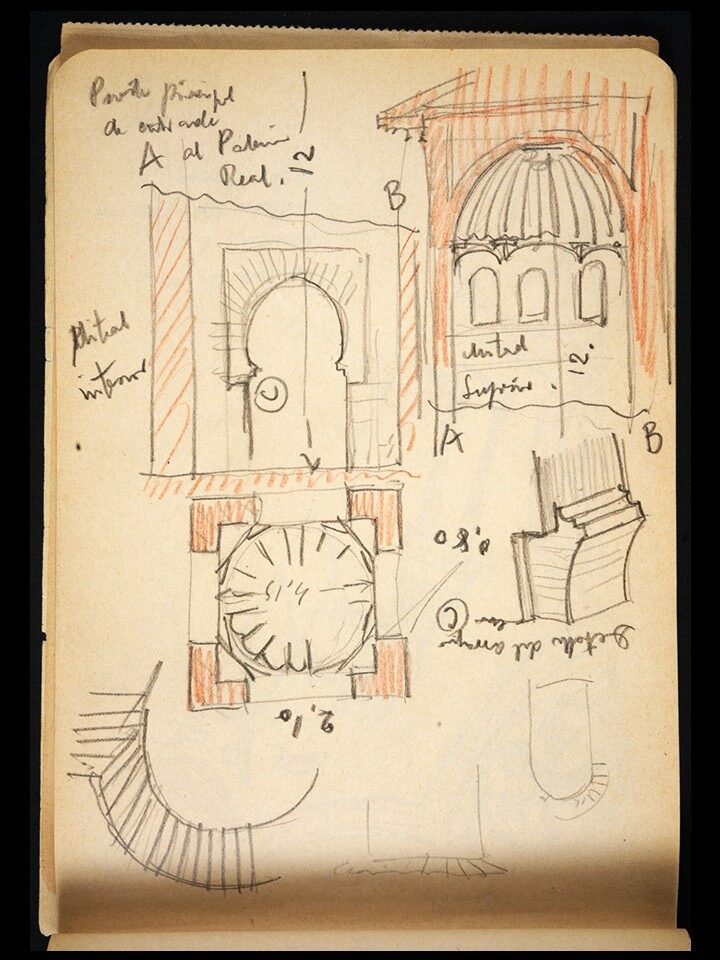 principal
de entrada
A al Palacio
Real.
12
B
Mitad
inferior
C
Mitad
Superior.
12.
A
B
0,80
Detalle del arranque
en C
4,15
2,10